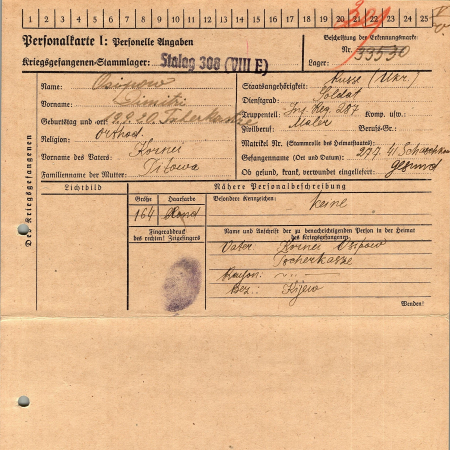 1 2 3 4 5 6 7 8 9 10 11 12 13 14 15 16 17 18 19 20 21 22 23 24 25
Personalkarte I: Personelle Angaben
Kriegsgefangenen-Stammlager: Stalag 308 (VIII E)
Beschriftung der Erkennungsmarke
Nr. 33530
Lager:
Des Kriegsgefangenen
Name: Osipow
Vorname: Dimitri
Geburtstag und -ort:
Religion: orthod.
Vorname des Vaters: Kornei
Familienname der Mutter: Titowa
Staatsangehörigkeit: Russe (Ukr.)
Dienstgrad: Soldat
Truppenteil: Inf. Reg. 287 Komp. usw.:
Zivilberuf: Maler Berufs-Gr.:
Matrikel Nr. (Stammrolle des Heimatstaates):
Gefangennahme (Ort und Datum): 27.9.41
Ob gesund, krank, verwundet eingeliefert: Gesund
Lichtbild
Nähere Personalbeschreibung
Größe Haarfarbe Besondere Kennzeichen: keine
164 Blond
Fingerabdruck
des rechten! Zeigefingers
Name und Anschrift der zu benachrichtigenden Person in der Heimat
des Kriegsgefangenen
Vater: Kornei Osipow
Tscherkasze
Rayon:
Bez.: Kijew
Wenden!